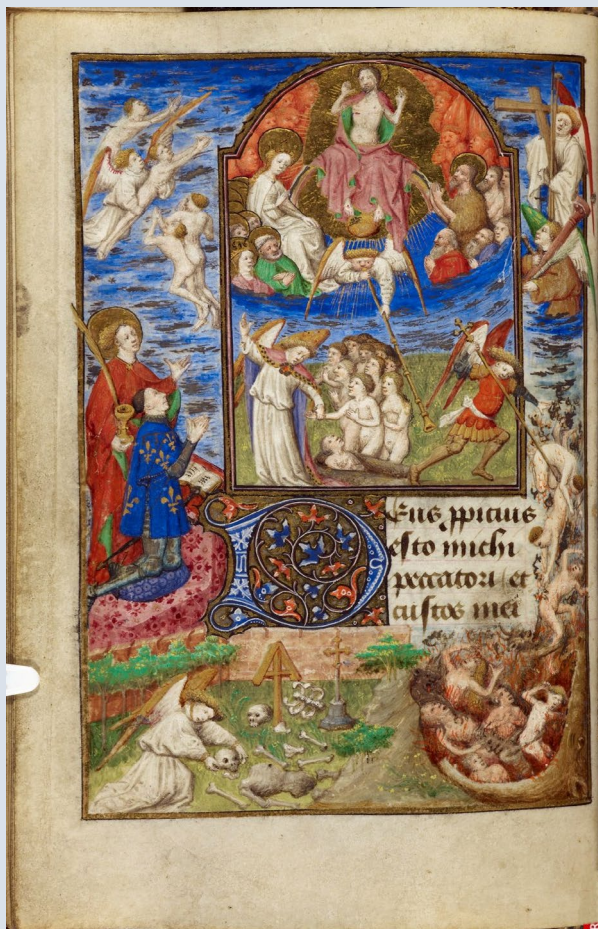 Deus ppicius
esto michi
peccatori et
custos mei